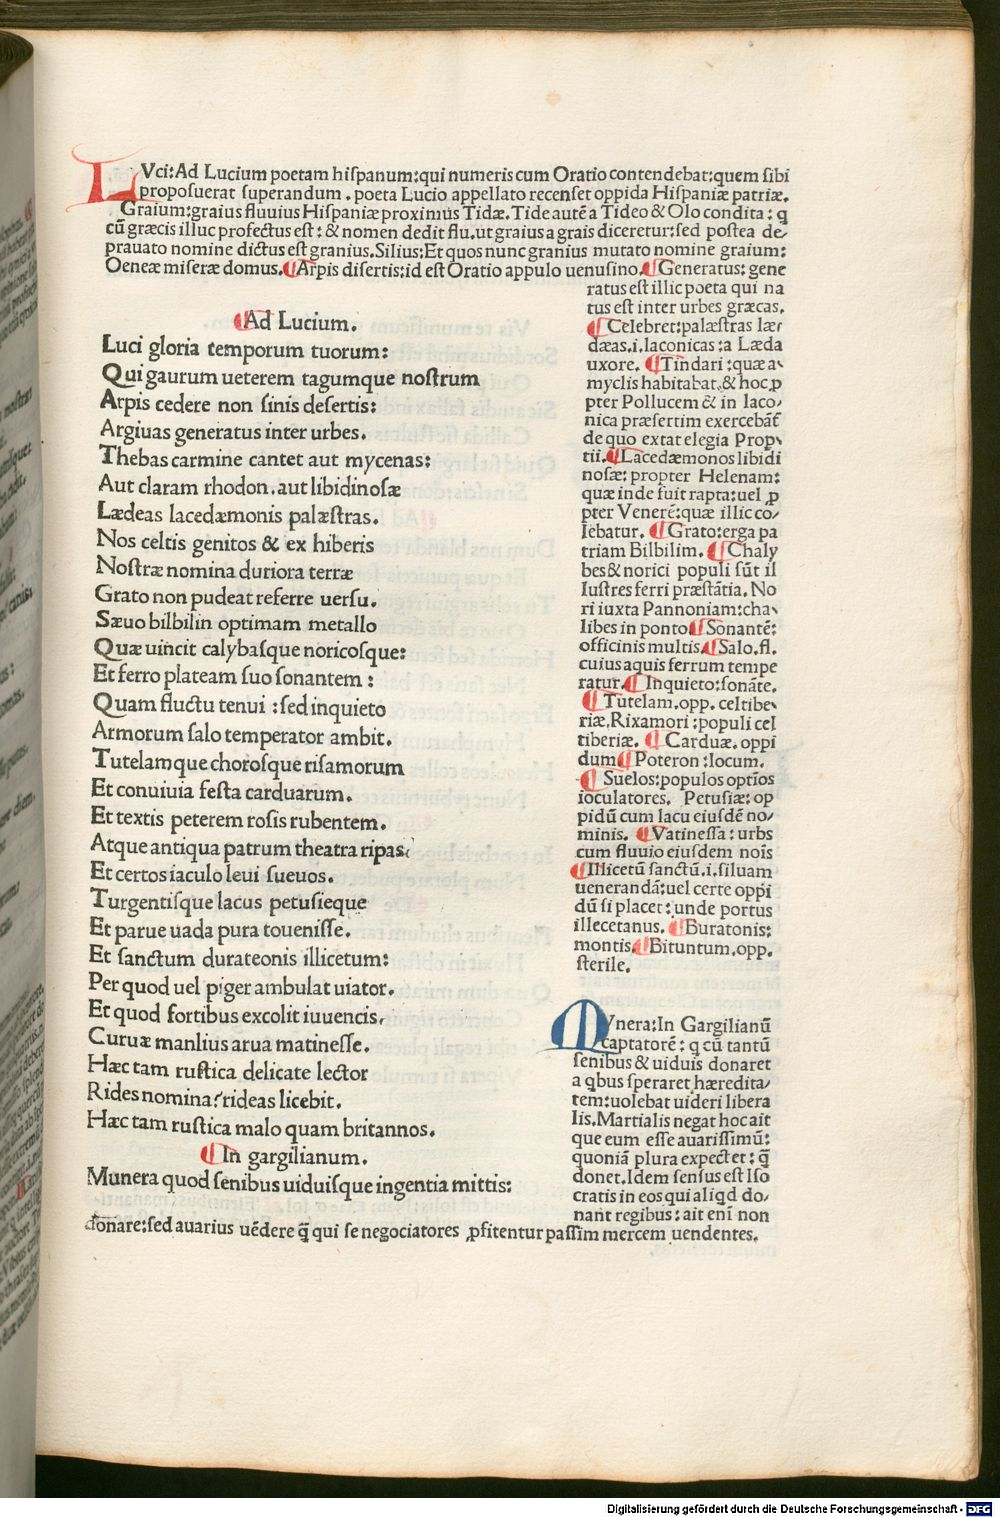 LVci:Ad Lucium poetam hispanum:qui numeris cum Oratio contendebat:quem sibi
proposuerat superandum. poeta Lucio appellato recenset oppida Hispaniæ patriæ.
Graium:graius fluuius Hispaniæ proximus Tidæ. Tide autē a Tideo & Olo condita: q
cū græcis illuc profectus est: & nomen dedit flu. ut graius a grais diceretur:sed postea de/
prauato nomine dictus est granius. Silius:Et quos nunc granius mutato nomine graium:
Oeneæ miseræ domus. ¶Arpis disertis:id est Oratio appulo uenusino.¶Generatus: gene
ratus est illic poeta qui na
tus est inter urbes græcas.
¶Celebret:palæstras lær
dæas.i.laconicas:a Læda
uxore. ¶Tindari:quæ a/
myclis habitabat,& hoc ꝓ
pter Pollucem & in laco/
nica præsertim exercebāt
de quo extat elegia Prop/
tii.¶Lacedæmonos libidi
nosæ: propter Helenam:
quæ inde fuit rapta:uel ꝓ
pter Venerē:quæ illic co/
lebatur. ¶Grato:erga pa
triam Bilbilim. ¶Chaly
bes & norici populi sūt il
lustres ferri præstātia. No
ri iuxta Pannoniam:cha/
libes in ponto¶Sonantē:
officinis multis.¶Salo.fl.
cuius aquis ferrum tempe
ratur.¶Inquieto:sonāte.
¶Tutelam.opp.celtibe/
riæ,Rixamori:populi cel
tiberiæ. ¶Carduæ.oppi
dum¶Poteron:locum.
¶Suelos:populos optīos
ioculatores. Petusiæ: op
pidū cum lacu eiusdē no/
minis. ¶Vatinessa:urbs
cum fluuio eiusdem nois
¶Illicetū sanctū.i.siluam
uenerandā:uel certe oppi
dū si placet:unde portus
illecetanus. ¶Buratonis:
montis.¶Bituntum.opp.
sterile.
¶Ad Lucium.
Luci gloria temporum tuorum:
Qui gaurum ueterem tagumque nostrum
Arpis cedere non sinis desertis:
Argiuas generatus inter urbes.
Thebas carmine cantet aut mycenas:
Aut claram rhodon.aut libidinosæ
Lædeas lacedæmonis palæstras.
Nos celtis genitos & ex hiberis
Nostræ nomina duriora terræ
Grato non pudeat referre uersu.
Sæuo bilbilin optimam metallo
Quæ uincit calybasque noricosque:
Et ferro plateam suo sonantem:
Quam fluctu tenui:sed inquieto
Armorum salo temperator ambit.
Tutelamque chorosque risamorum
Et conuiuia festa carduarum.
Et textis peterem rosis rubentem.
Atque antiqua patrum theatra ripas:
Et certos iaculo leui sueuos.
Turgentisque lacus petusieque
Et parue uada pura touenisse.
Et sanctum durateonis illicetum:
Per quod uel piger ambulat uiator.
Et quod fortibus excolit iuuencis.
Curuæ manlius arua matinesse.
Hæc tam rustica delicate lector
Rides nomina?rideas licebit.
Hæc tam rustica malo quam britannos.
¶In gargilianum.
Munera quod senibus uiduisque ingentia mittis:
MVnera:In Gargilianū
captatorē: q cū tantū
senibus & uiduis donaret
a qbus speraret hæredita/
tem:uolebat uideri libera
lis.Martialis negat hoc ait
que eum esse auarissimū:
quoniā plura expectet: q̄
donet.Idem sensus est Iso
cratis in eos qui aliqd do/
nant regibus: ait enī non
donare:sed auarius uēdere q̄ qui se negociatores ꝓfitentur passim mercem uendentes.
Digitalisierung gefördert durch die Deutsche Forschungsgemeinschaft - DFG